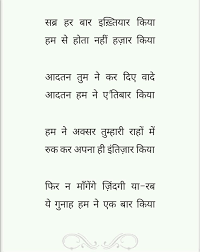 सब्र हर बार इख़्तियार किया
हम से होता नहीं हज़ार किया
आदतन तुम ने कर दिए वादे
आदतन हम ने ए'तिबार किया
हम ने अक्सर तुम्हारी राहों में
रुक कर अपना ही इंतिज़ार किया
फिर न माँगेंगे ज़िंदगी या-रब
ये गुनाह हम ने एक बार किया